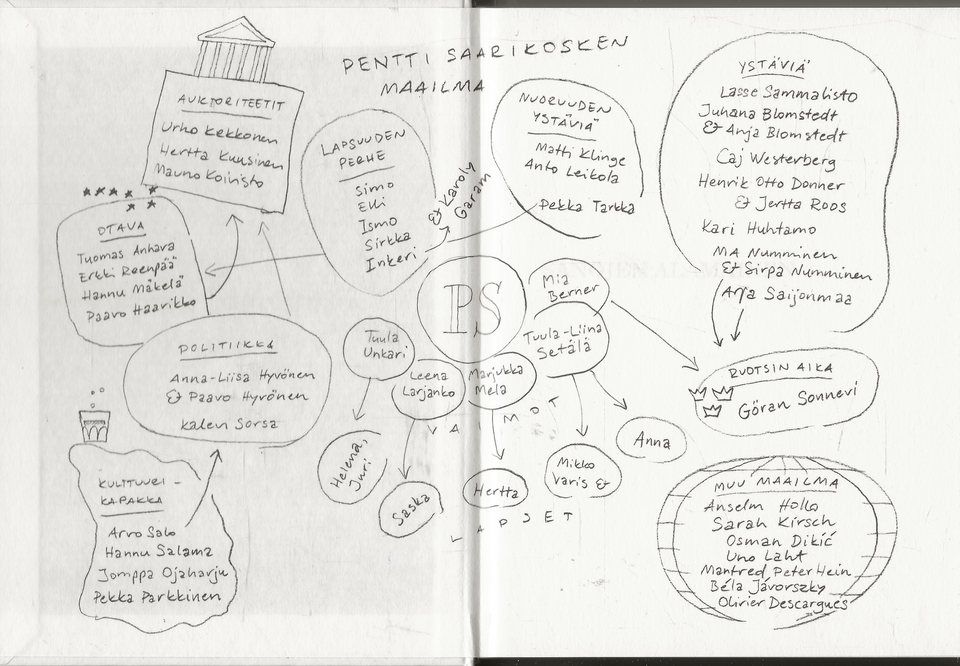 PENTTI SAARIKOSKEN
MAAILMA
AUKTORITEETIT
Urho Kekkonen
Hertta Kuusinen
Mauno Koivisto
LAPSUUDEN
PERHE
Simo
Elli
Ismo
Sirkka
Inkeri
& Karoly
Garam
NUORUUDEN
YSTÄVIÄ
Matti Klinge
Anto Leikola
Pekka Tarkka
YSTÄVIÄ
Lasse Sammalisto
Juhana Blomstedt
& Anja Blomstedt
Caj Westerberg
Henrik Otto Donner
& Jertta Roos
Kari Huhtamo
MA Numminen
& Sirpa Numminen
Arja Saijonmaa
OTAVA
Tuomas Anhava
Erkki Reenpää
Hannu Mäkelä
Paavo Haavikko
POLITIIKKA
Anna-Liisa Hyvönen
& Paavo Hyvönen
Kalevi Sorsa
PS
Mia
Berner
Tuula
Unkari
Leena
Larjanko
Marjukka
Mela
Tuula-Liina
Setälä
VAIMOT
Helena,
Juri
Saska
Hertta
Mikko
Varis &
Anna
LAPSET
RUOTSIN AIKA
Göran Sonnevi
KULTTUURI-
KAPAKKA
Arvo Salo
Hannu Salama
Jomppa Ojaharju
Pekka Parkkinen
MUU MAAILMA
Anselm Hollo
Sarah Kirsch
Osman Dikić
Uno Laht
Manfred Peter Hein
Béla Jávorszky
Olivier Descargues